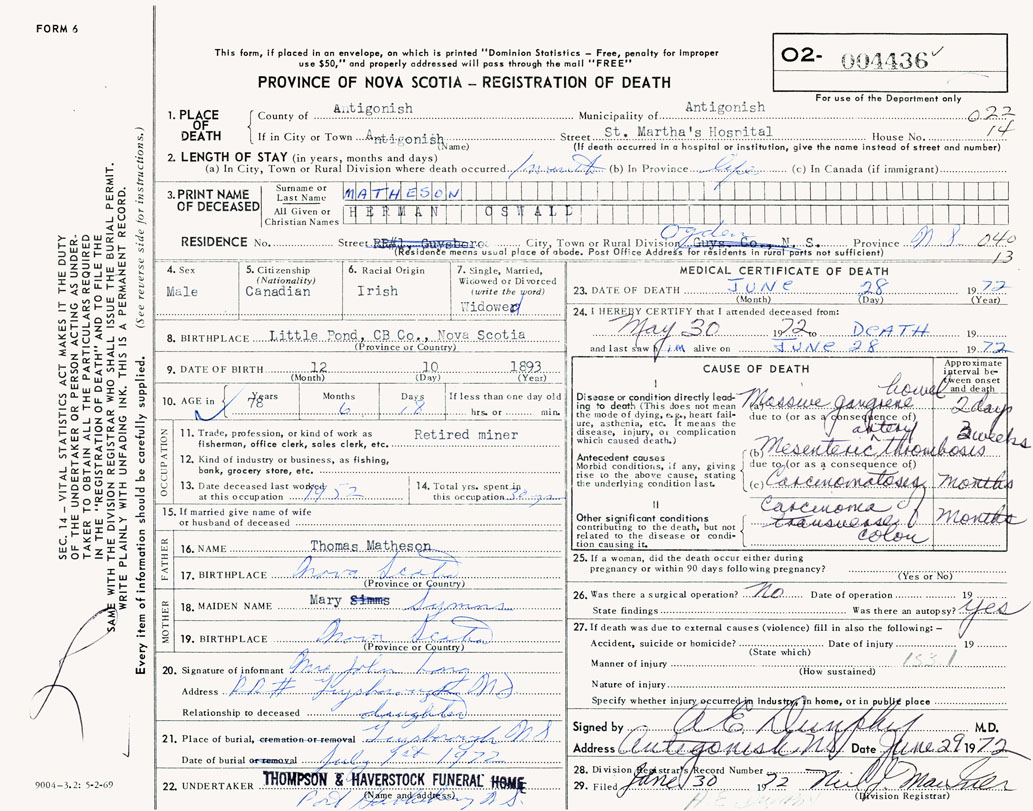 FORM 6
This form, if placed in an envelope, on which is printed "Dominion Statistics – Free, penalty for improper
use $50," and properly addressed will pass through the mail "FREE"
PROVINCE OF NOVA SCOTIA – REGISTRATION OF DEATH
O2- 004436
For use of the Department only
1. PLACE OF DEATH
County of Antigonish Municipality of Antigonish 022
If in City or Town Antigonish Street St. Martha's Hospital House No. 14
(Name) (If death occurred in a hospital or institution, give the name instead of street and number)
2. LENGTH OF STAY (in years, months and days)
(a) In City, Town or Rural Division where death occurred 1 month (b) In Province Life (c) In Canada (if immigrant)
3. PRINT NAME OF DECEASED
Surname or Last Name MATHESON
All Given or Christian Names HERMAN OSWALL
RESIDENCE No. Street RR#1, Guysboro City, Town or Rural Division Ogden Guys. Co., N. S. Province N S 040
(Residence means usual place of abode. Post Office Address for residents in rural parts not sufficient) 13
4. Sex
Male
5. Citizenship
(Nationality)
Canadian
6. Racial Origin
Irish
7. Single, Married,
Widowed or Divorced
(write the word)
Widowed
8. BIRTHPLACE Little Pond, CB Co., Nova Scotia
(Province or Country)
9. DATE OF BIRTH 12 10 1893
(Month) (Day) (Year)
10. AGE in Years Months Days If less than one day old
78 6 18 hrs. or min.
OCCUPATION
11. Trade, profession, or kind of work as Retired miner
fisherman, office clerk, sales clerk, etc.
12. Kind of industry or business, as fishing,
bank, grocery store, etc.
13. Date deceased last worked
at this occupation 1952
14. Total yrs. spent in
this occupation 30 yrs
15. If married give name of wife
or husband of deceased
FATHER
16. NAME Thomas Matheson
17. BIRTHPLACE Nova Scotia
(Province or Country)
MOTHER
18. MAIDEN NAME Mary Simms Symns
19. BIRTHPLACE Nova Scotia
(Province or Country)
20. Signature of informant Mrs John Long
Address R.R # Guysborough NS
Relationship to deceased daughter
21. Place of burial, cremation or removal Guysborough N S
Date of burial or removal July 1st 1972
22. UNDERTAKER THOMPSON & HAVERSTOCK FUNERAL HOME
(Name and address)
Port Hawkesbury N.S.
MEDICAL CERTIFICATE OF DEATH
23. DATE OF DEATH JUNE 28 1972
(Month) (Day) (Year)
24. I HEREBY CERTIFY that I attended deceased from:
May 30 1972 to DEATH 19
and last saw him alive on JUNE 28 1972
CAUSE OF DEATH
Approximate
interval be-
tween onset
and death
I
Disease or condition directly lead-
ing to death (This does not mean
the mode of dying, e.g., heart fail-
ure, asthenia, etc. It means the
disease, injury, or complication
which caused death.)
(a) Massive gangrene bowel 2 days
due to (or as a consequence of)
Antecedent causes
Morbid conditions, if any, giving
rise to the above cause, stating
the underlying condition last.
(b) Mesenteric artery thrombosis 3 weeks
due to (or as a consequence of)
(c) Carcinomatosis Months
II
Other significant conditions
contributing to the death, but not
related to the disease or condi-
tion causing it.
Carcinoma of
transverse
colon
Months
25. If a woman, did the death occur either during
pregnancy or within 90 days following pregnancy?
(Yes or No)
26. Was there a surgical operation? No Date of operation 19
State findings Was there an autopsy? Yes
27. If death was due to external causes (violence) fill in also the following: –
Accident, suicide or homicide? Date of injury 19
(State which)
Manner of injury 153.1
(How sustained)
Nature of injury
Specify whether injury occurred in Industry, in home, or in public place
Signed by A E Dunphy M.D.
Address Antigonish NS Date June 29 1972
28. Division Registrar's Record Number
29. Filed June 30 1972
(Division Registrar)
SEC. 14 – VITAL STATISTICS ACT MAKES IT THE DUTY
OF THE UNDERTAKER OR PERSON ACTING AS UNDER-
TAKER TO OBTAIN ALL THE PARTICULARS REQUIRED
IN THE "REGISTRATION OF DEATH" AND TO FILE THE
SAME WITH THE DIVISION REGISTRAR WHO SHALL ISSUE THE BURIAL PERMIT.
WRITE PLAINLY WITH UNFADING INK. THIS IS A PERMANENT RECORD.
Every item of information should be carefully supplied. (See reverse side for instructions.)
9004–3.2: 5-2-69